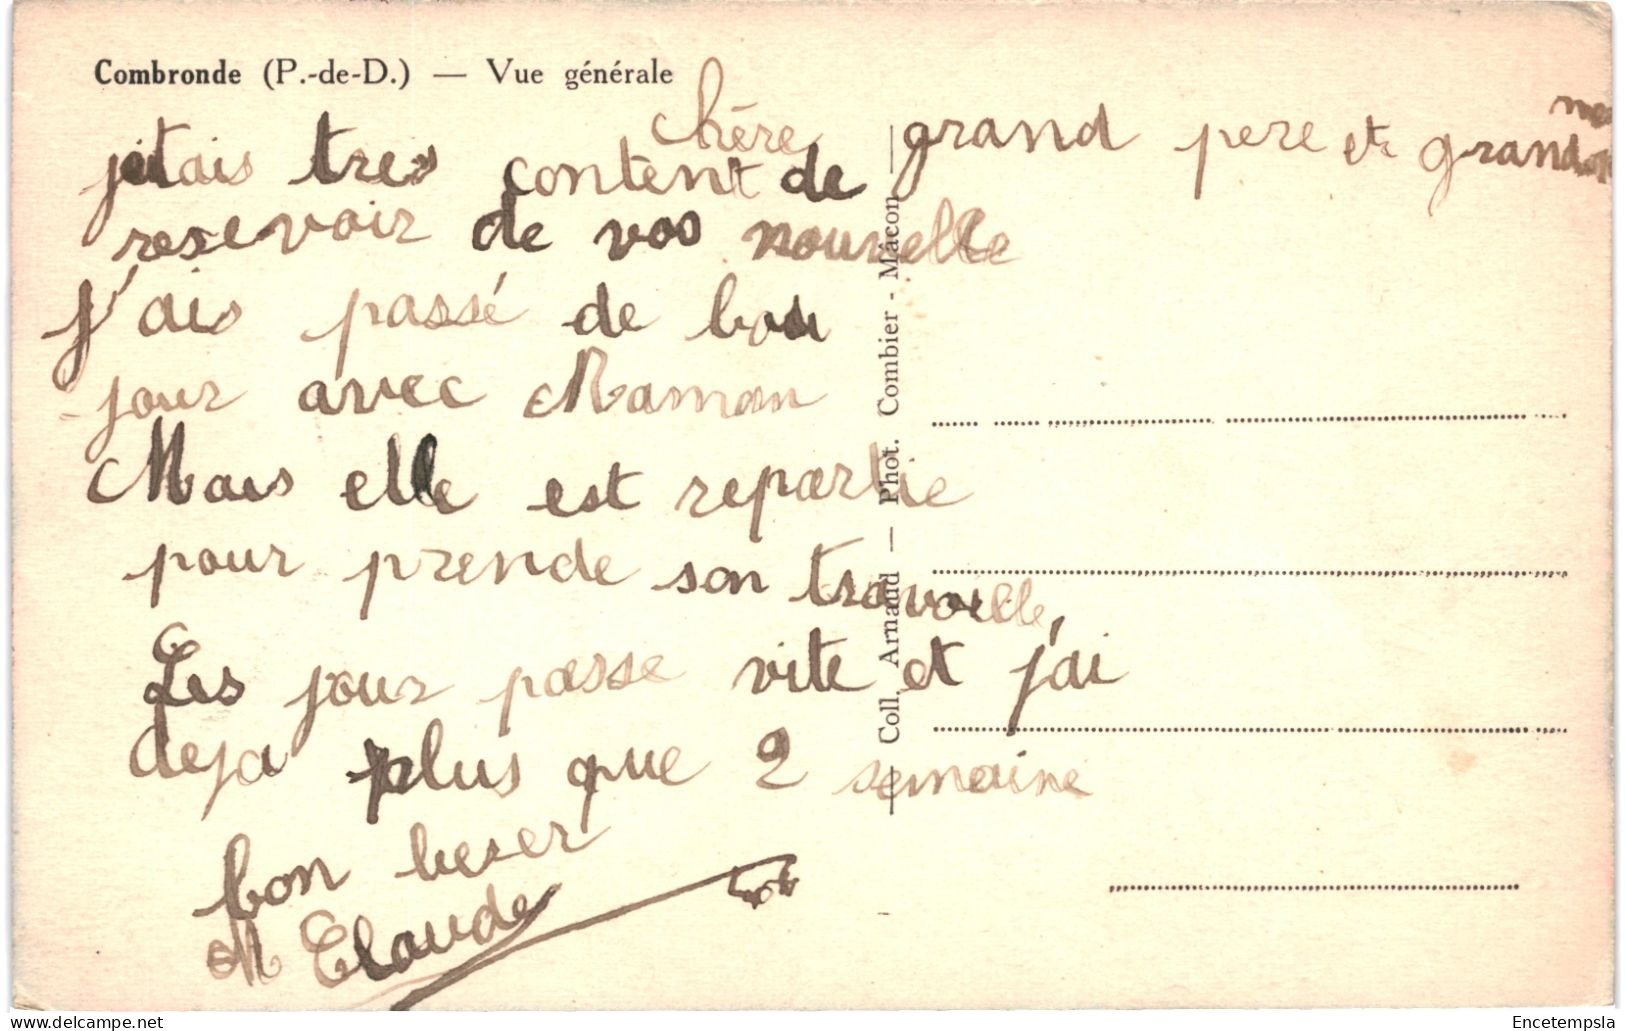 Combronde (P.-de-D.) — Vue générale
chère grand pere et grand
jetais tres content de
resevoir de vos nouvelle
j'ais passé de bon
jour avec Maman
Mais elle est repartie
pour prende son travaille,
Les jour passe vite et j'ai
deja plus que 2 semaine
bon beser
M Claude
Coll. Arnaud — Phot. Combier - Mâcon
Encetempsla